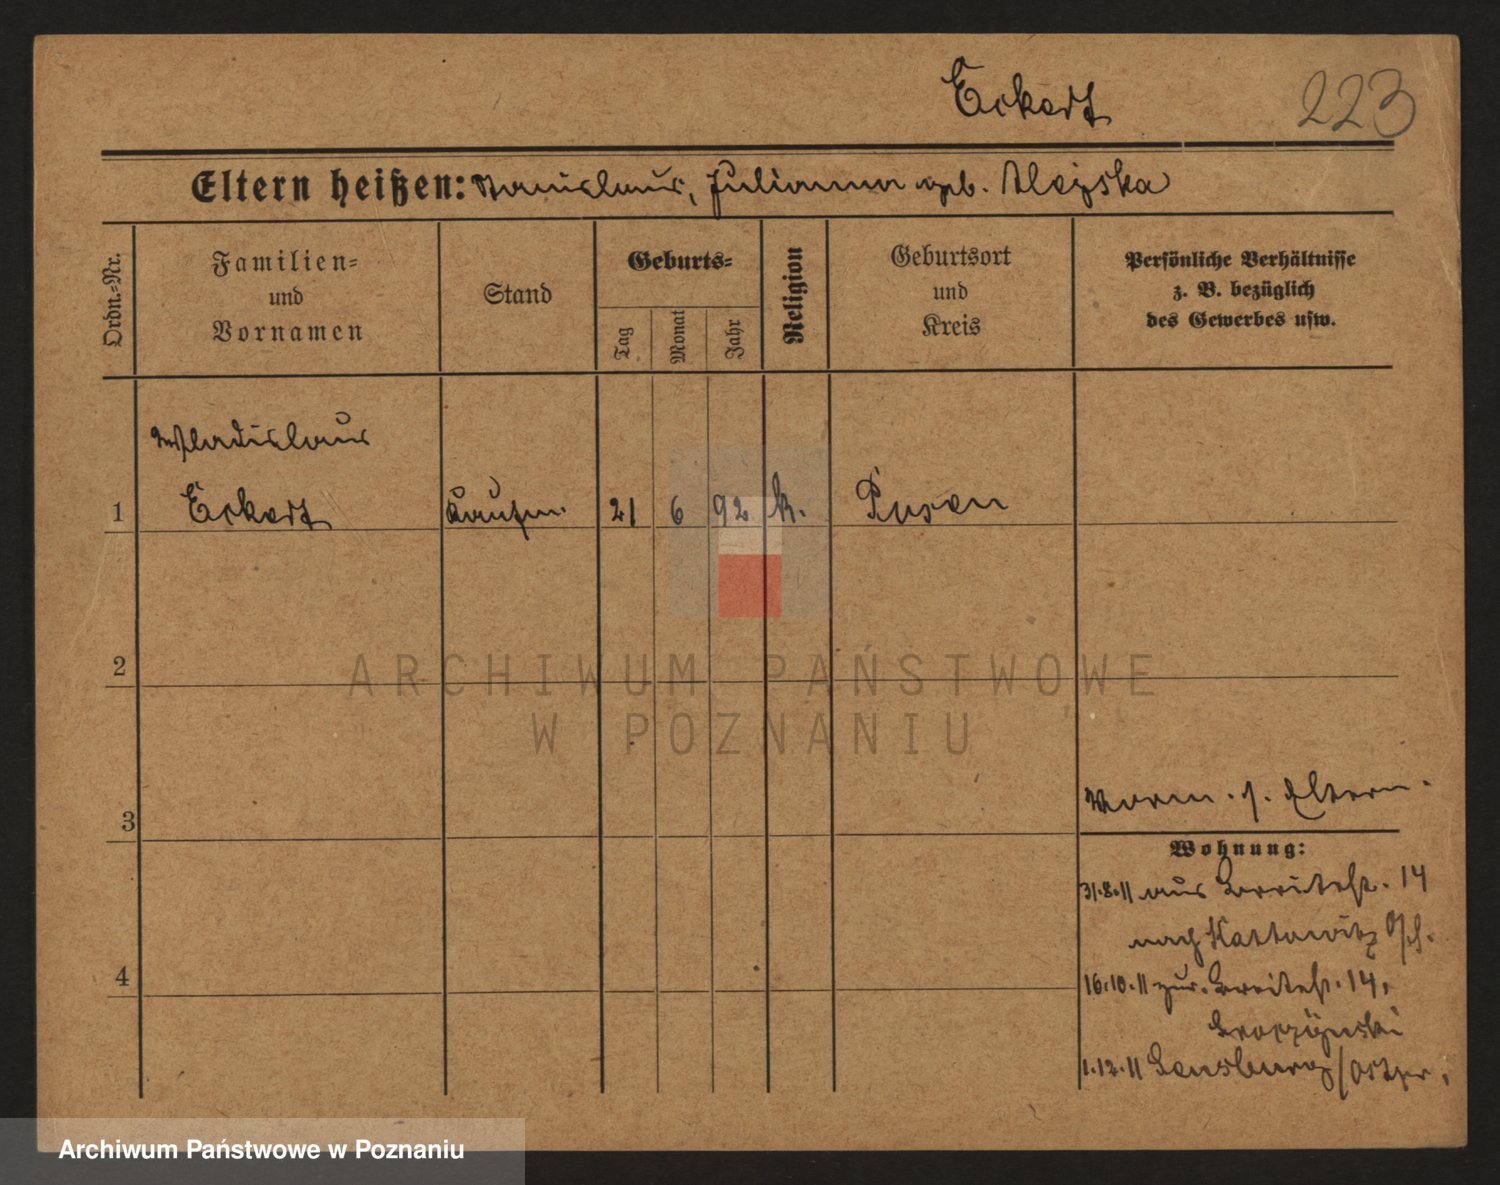 Eckert
223
Eltern heißen: Stanislaus, Julianna geb. Alejska
Ordn.-Nr.
Familien-
und
Vornamen
Stand
Geburts-
Tag
Monat
Jahr
Religion
Geburtsort
und
Kreis
Persönliche Verhältnisse
z. B. bezüglich
des Gewerbes usw.
Wladislaus
1 Eckert Kaufm. 21 6 92 k. Posen
2
3
4
Vorm. s. Eltern.
Wohnung:
31.8.11 aus Breitestr. 14
nach Kattowitz O/S.
16.10.11 zur. Breitestr. 14,
1.12.11 Sensburg/Ostpr.
ARCHIWUM PAŃSTWOWE
W POZNANIU
Archiwum Państwowe w Poznaniu